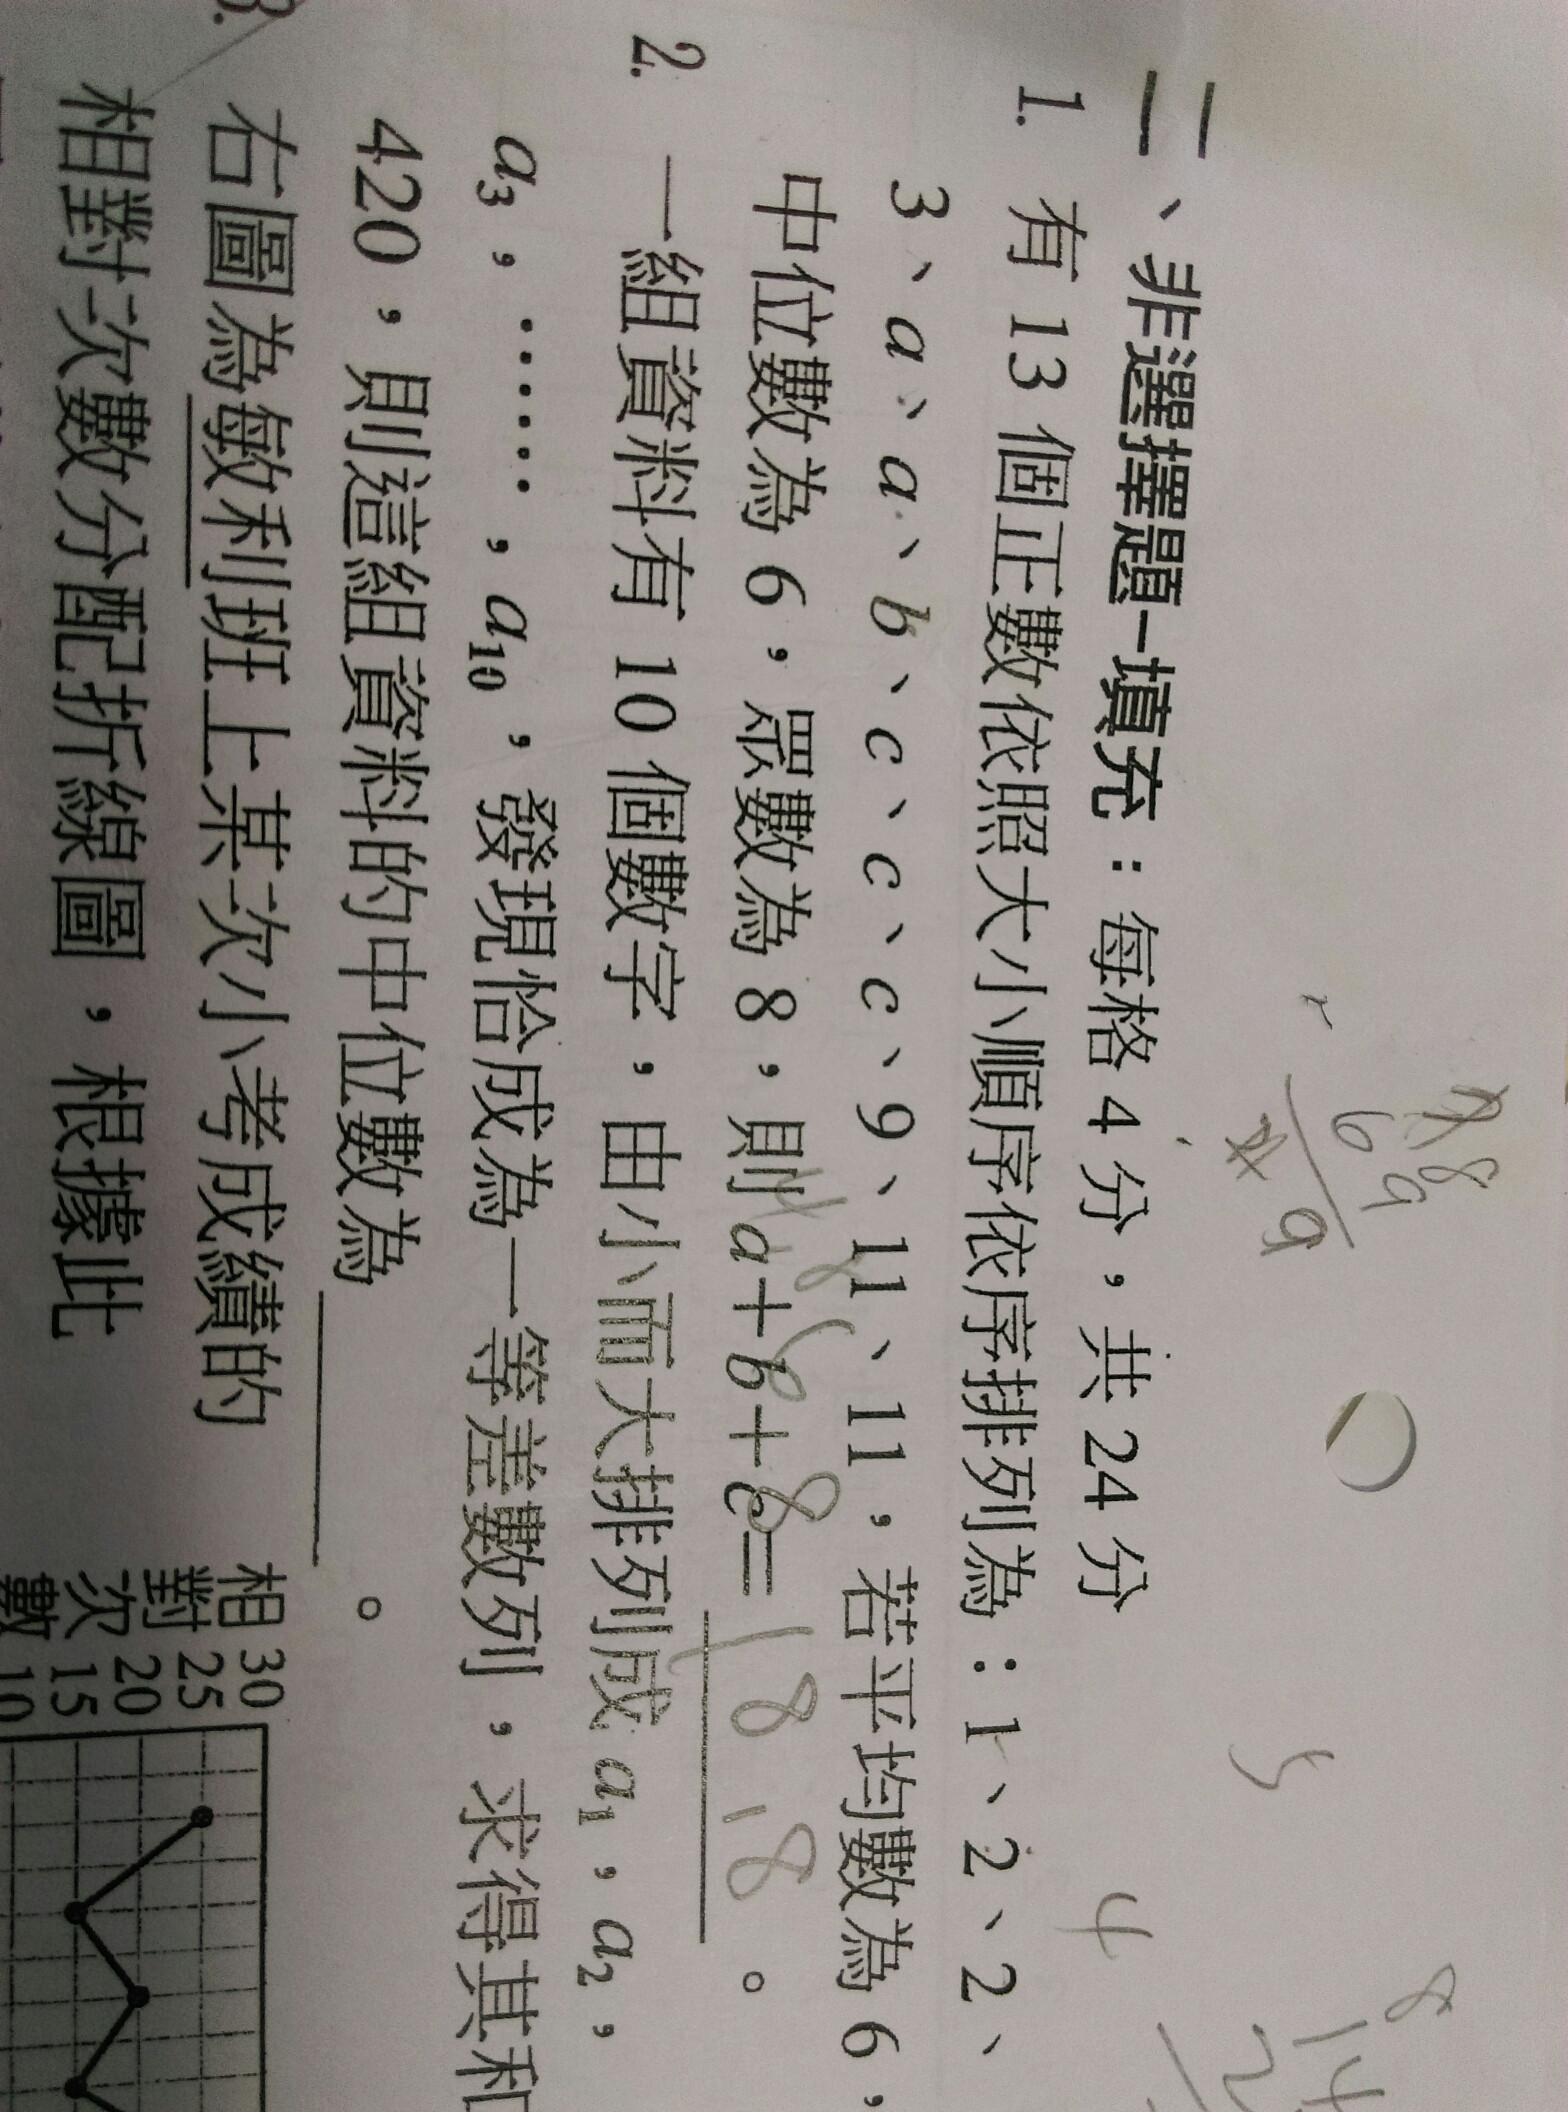 二、非選擇題-填充：每格 4 分，共 24 分
1. 有 13 個正數依照大小順序依序排列為：1、2、2、
3、a、a、b、c、c、c、9、11、11，若平均數為 6，
中位數為 6，眾數為 8，則 a＋b＋c＝ 18 18 。
2. 一組資料有 10 個數字，由小而大排列成 a₁，a₂，
a₃，……，a₁₀，發現恰成為一等差數列，求得其和
420，則這組資料的中位數為＿＿＿＿。
3.
右圖為敏利班上某次小考成績的
相對次數分配折線圖，根據此
相對次數
30
25
20
15
10
4
8
14